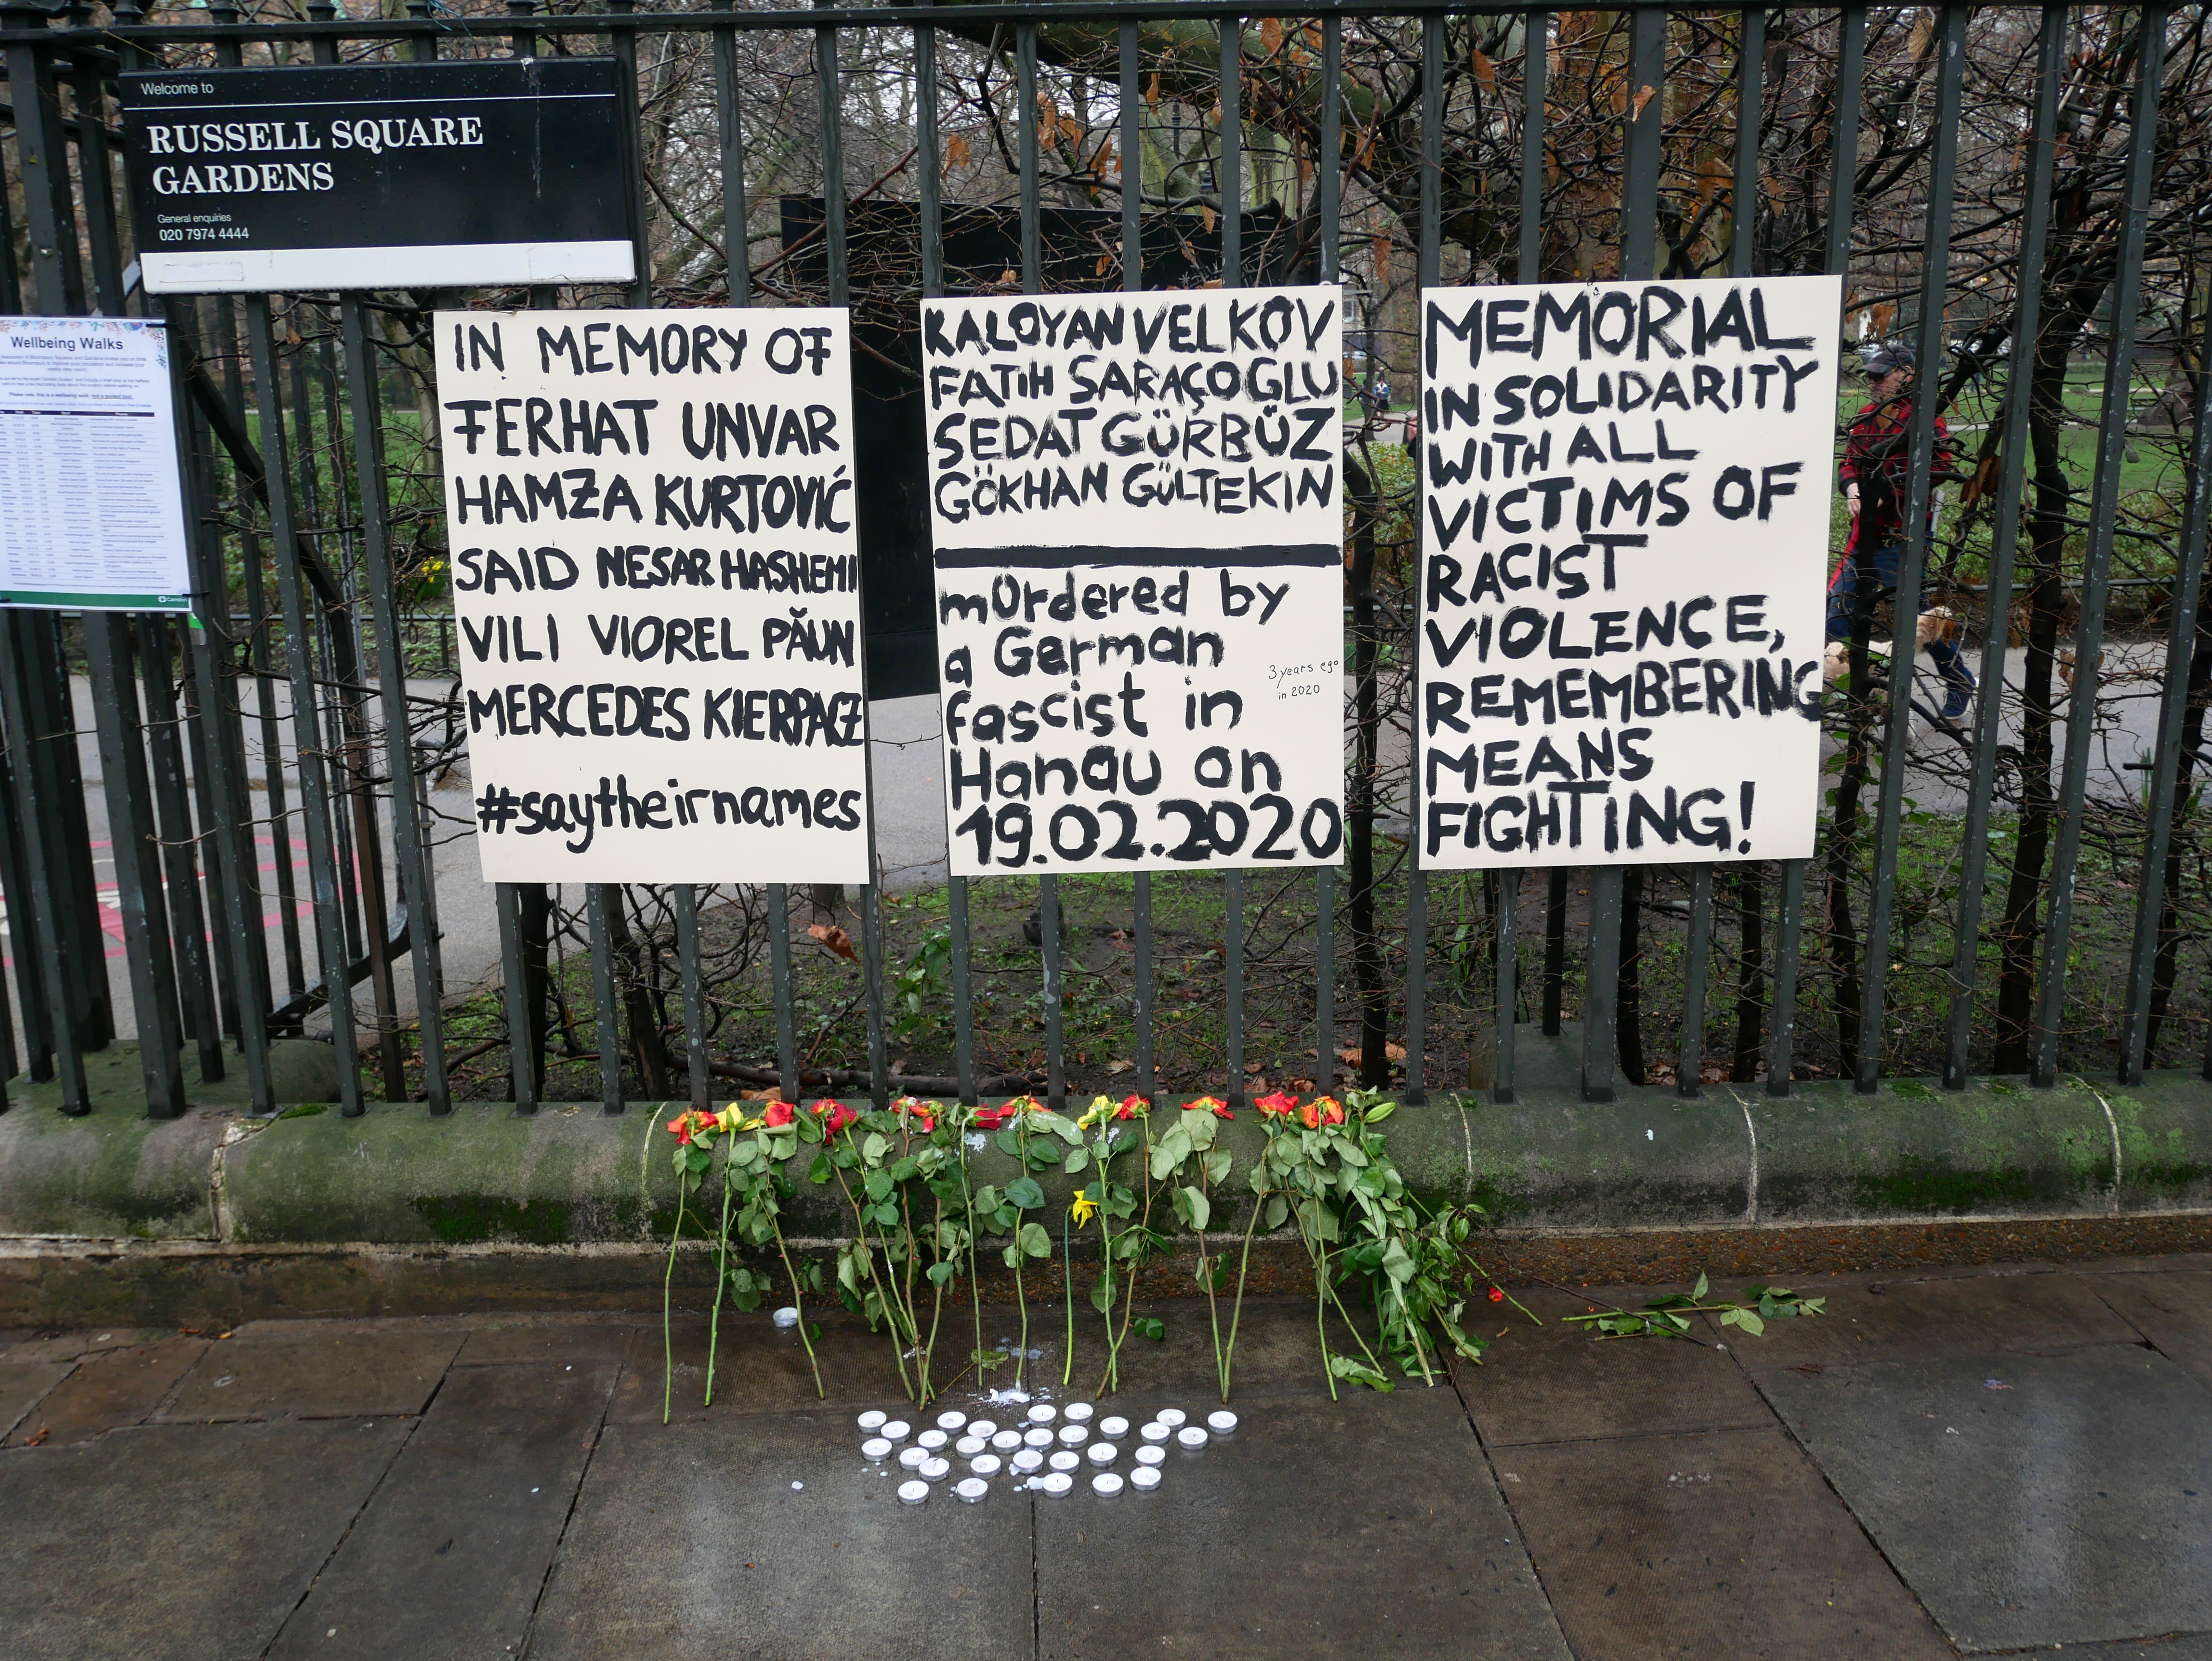 Welcome to
RUSSELL SQUARE
GARDENS
General enquiries
020 7974 4444
Wellbeing Walks
Please note, this is a wellbeing walk, not a guided tour.
Camden
IN MEMORY OF
FERHAT UNVAR
HAMZA KURTOVIĆ
SAID NESAR HASHEMI
VILI VIOREL PĂUN
MERCEDES KIERPACZ
#saytheirnames
KALOYAN VELKOV
FATIH SARAÇOGLU
SEDAT GÜRBÜZ
GÖKHAN GÜLTEKIN
mUrdered by
a German
fascist in
Hanau on
19.02.2020
3 years ego
in 2020
MEMORIAL
IN SOLIDARITY
WITH ALL
VICTIMS OF
RACIST
VIOLENCE,
REMEMBERING
MEANS
FIGHTING!